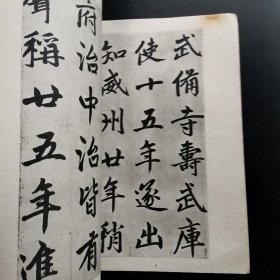 武備寺壽武庫
使十五年遂出
知威州廿年
府治中治皆有
聲稱廿五年